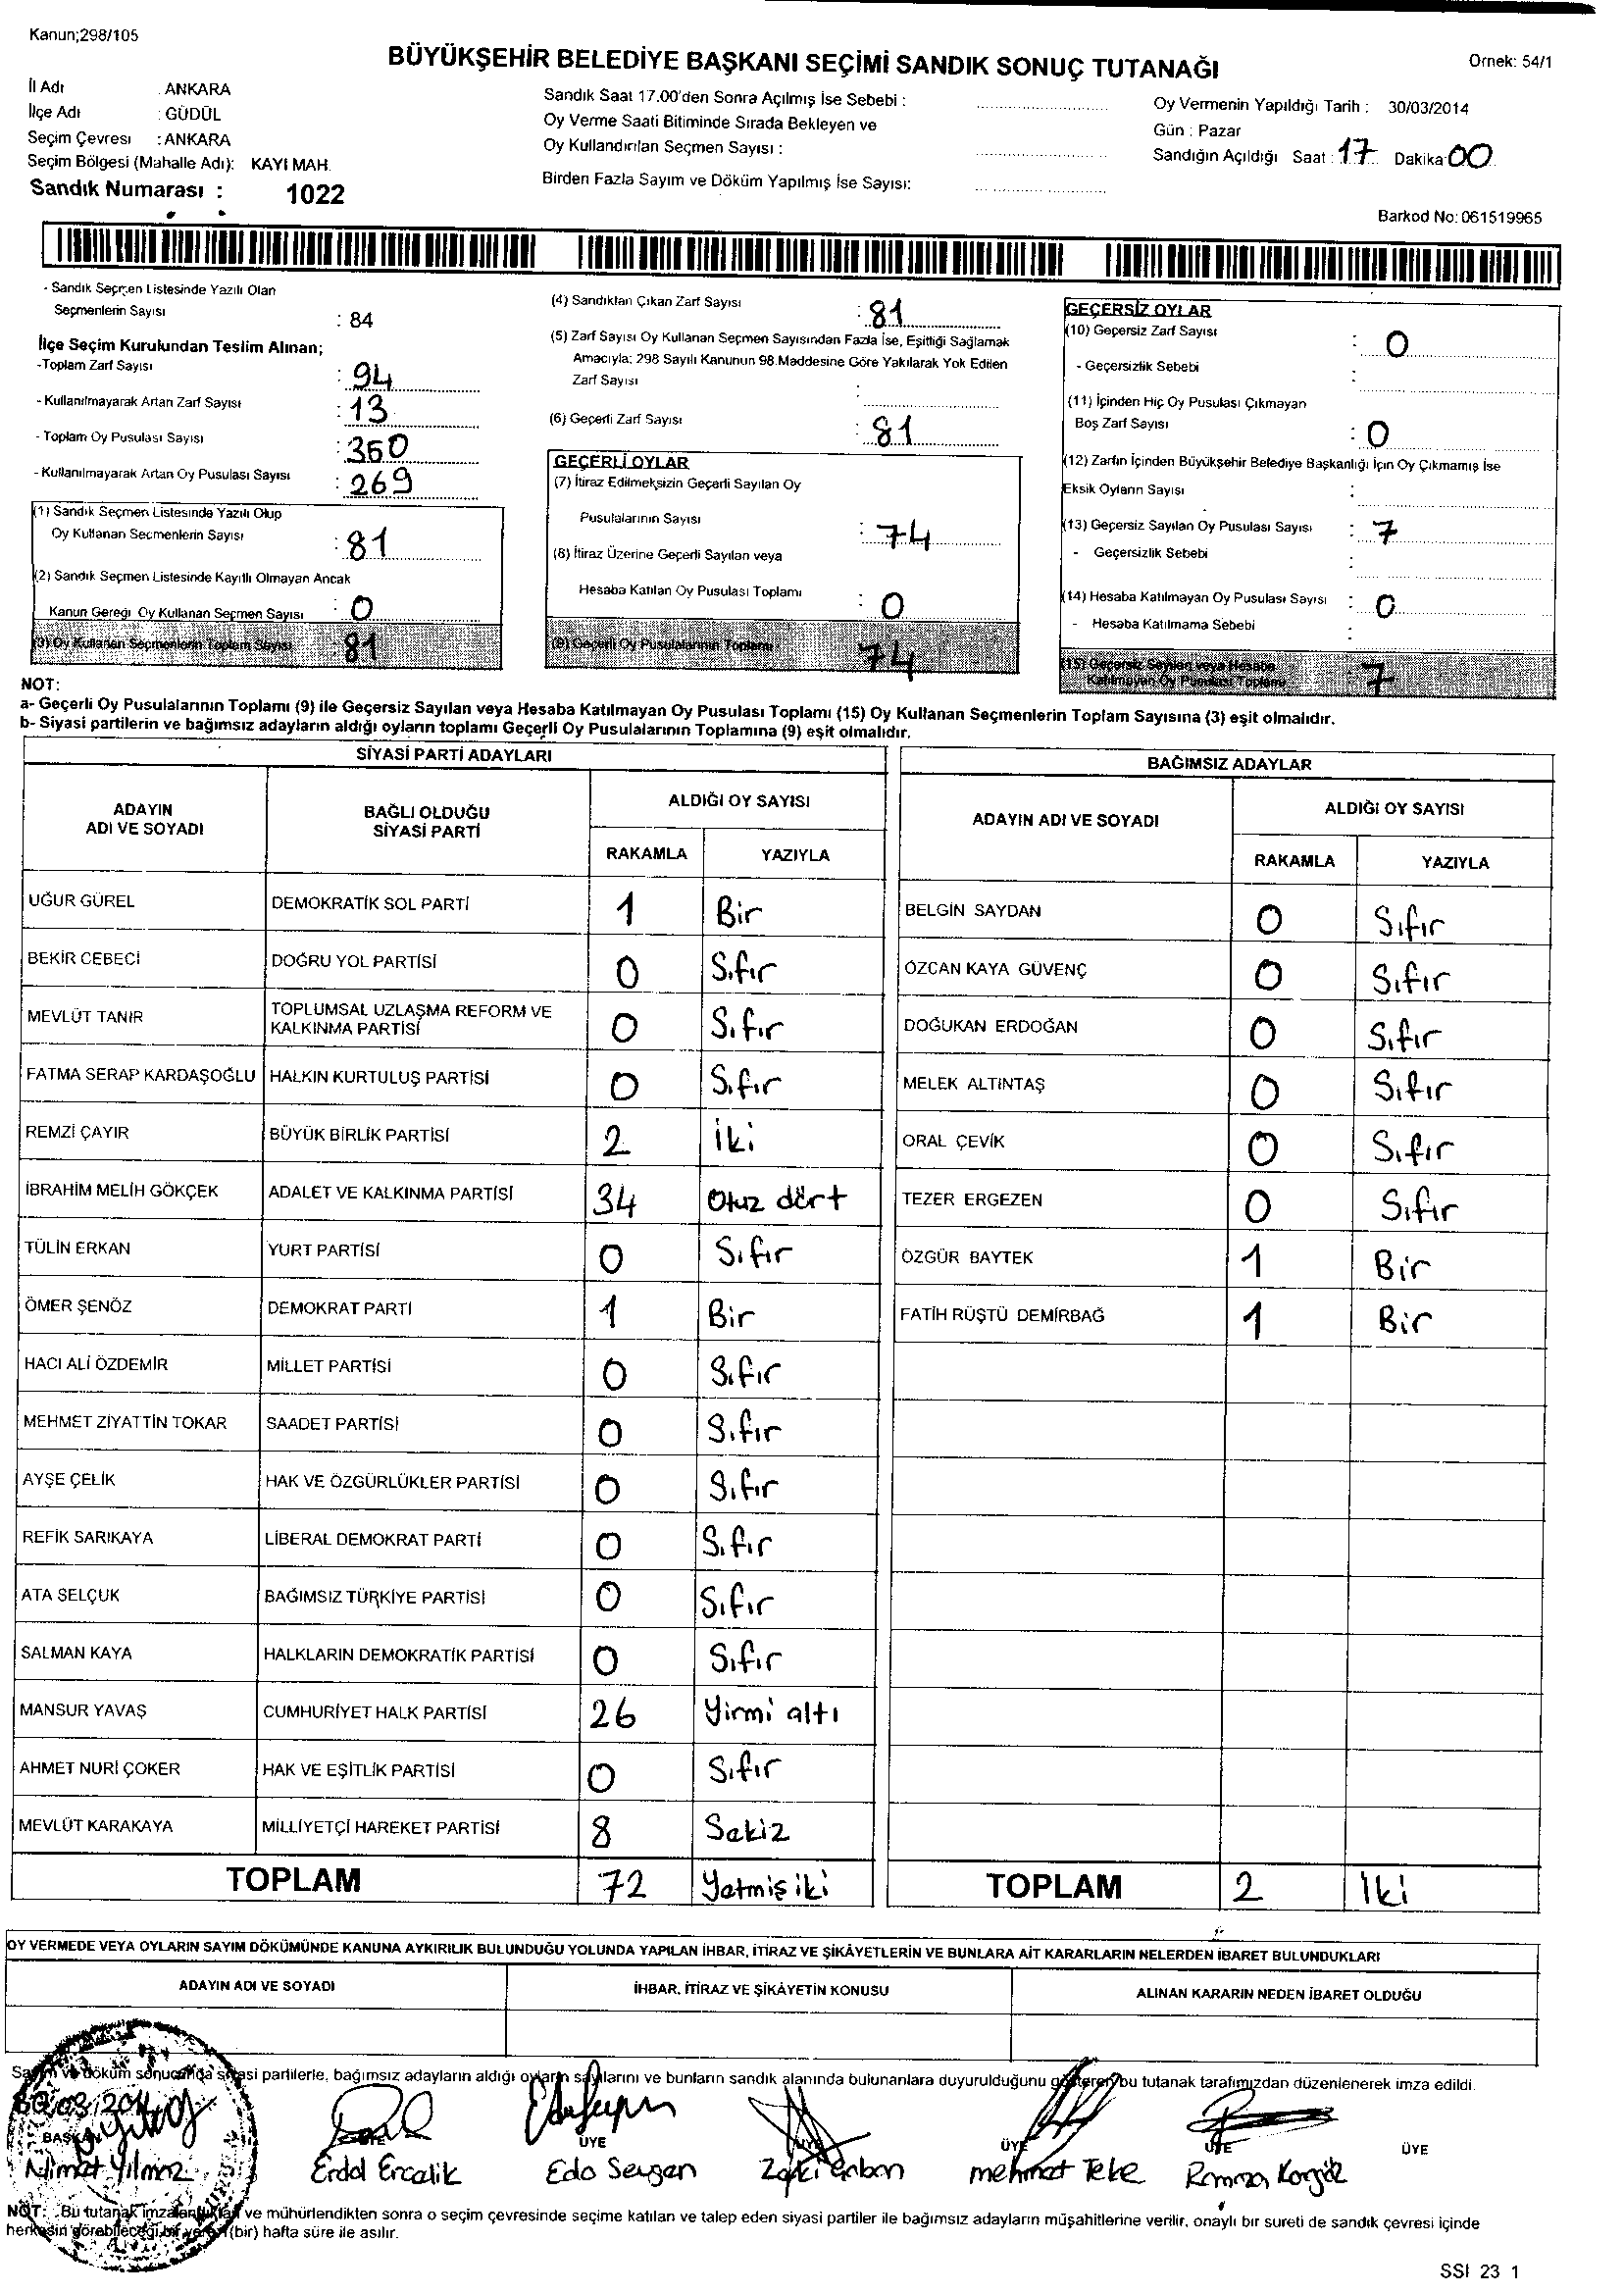 Kanun;298/105
BÜYÜKŞEHİR BELEDİYE BAŞKANI SEÇİMİ SANDIK SONUÇ TUTANAĞI
Ornek: 54/1
İl Adı : ANKARA
İlçe Adı : GÜDÜL
Seçim Çevresi : ANKARA
Seçim Bölgesi (Mahalle Adı): KAYI MAH.
Sandık Numarası : 1022
Sandık Saat 17.00'den Sonra Açılmış İse Sebebi :
Oy Verme Saati Bitiminde Sırada Bekleyen ve
Oy Kullandırılan Seçmen Sayısı :
Birden Fazla Sayım ve Döküm Yapılmış İse Sayısı:
Oy Vermenin Yapıldığı Tarih : 30/03/2014
Gün : Pazar
Sandığın Açıldığı Saat : 17 Dakika 00
Barkod No: 061519965
- Sandık Seçmen Listesinde Yazılı Olan
Seçmenlerin Sayısı : 84
İlçe Seçim Kurulundan Teslim Alınan;
-Toplam Zarf Sayısı : 94
- Kullanılmayarak Artan Zarf Sayısı : 13
- Toplam Oy Pusulası Sayısı : 350
- Kullanılmayarak Artan Oy Pusulası Sayısı : 269
(1) Sandık Seçmen Listesinde Yazılı Olup
Oy Kullanan Seçmenlerin Sayısı : 81
(2) Sandık Seçmen Listesinde Kayıtlı Olmayan Ancak
Kanun Gereği Oy Kullanan Seçmen Sayısı : 0
(3) Oy Kullanan Seçmenlerin Toplam Sayısı : 81
(4) Sandıktan Çıkan Zarf Sayısı : 81
(5) Zarf Sayısı Oy Kullanan Seçmen Sayısından Fazla İse, Eşitliği Sağlamak
Amacıyla; 298 Sayılı Kanunun 98.Maddesine Göre Yakılarak Yok Edilen
Zarf Sayısı :
(6) Geçerli Zarf Sayısı : 81
GEÇERLİ OYLAR
(7) İtiraz Edilmeksizin Geçerli Sayılan Oy
Pusulalarının Sayısı : 74
(8) İtiraz Üzerine Geçerli Sayılan veya
Hesaba Katılan Oy Pusulası Toplamı : 0
(9) Geçerli Oy Pusulalarının Toplamı 74
GEÇERSİZ OYLAR
(10) Geçersiz Zarf Sayısı : 0
- Geçersizlik Sebebi :
(11) İçinden Hiç Oy Pusulası Çıkmayan
Boş Zarf Sayısı : 0
(12) Zarfın İçinden Büyükşehir Belediye Başkanlığı İçin Oy Çıkmamış İse
Eksik Oyların Sayısı :
(13) Geçersiz Sayılan Oy Pusulası Sayısı : 7
- Geçersizlik Sebebi :
(14) Hesaba Katılmayan Oy Pusulası Sayısı : 0
- Hesaba Katılmama Sebebi :
(15) Geçersiz Sayılan veya Hesaba
Katılmayan Oy Pusulası Toplamı 7
NOT:
a- Geçerli Oy Pusulalarının Toplamı (9) ile Geçersiz Sayılan veya Hesaba Katılmayan Oy Pusulası Toplamı (15) Oy Kullanan Seçmenlerin Toplam Sayısına (3) eşit olmalıdır.
b- Siyasi partilerin ve bağımsız adayların aldığı oyların toplamı Geçerli Oy Pusulalarının Toplamına (9) eşit olmalıdır.
SİYASİ PARTİ ADAYLARI
ADAYIN ADI VE SOYADI BAĞLI OLDUĞU SİYASİ PARTİ ALDIĞI OY SAYISI
RAKAMLA YAZIYLA
UĞUR GÜREL DEMOKRATİK SOL PARTİ 1 Bir
BEKİR CEBECİ DOĞRU YOL PARTİSİ 0 Sıfır
MEVLÜT TANIR TOPLUMSAL UZLAŞMA REFORM VE KALKINMA PARTİSİ 0 Sıfır
FATMA SERAP KARDAŞOĞLU HALKIN KURTULUŞ PARTİSİ 0 Sıfır
REMZİ ÇAYIR BÜYÜK BİRLİK PARTİSİ 2 İki
İBRAHİM MELİH GÖKÇEK ADALET VE KALKINMA PARTİSİ 34 Otuz dört
TÜLİN ERKAN YURT PARTİSİ 0 Sıfır
ÖMER ŞENÖZ DEMOKRAT PARTİ 1 Bir
HACI ALİ ÖZDEMİR MİLLET PARTİSİ 0 Sıfır
MEHMET ZİYATTİN TOKAR SAADET PARTİSİ 0 Sıfır
AYŞE ÇELİK HAK VE ÖZGÜRLÜKLER PARTİSİ 0 Sıfır
REFİK SARIKAYA LİBERAL DEMOKRAT PARTİ 0 Sıfır
ATA SELÇUK BAĞIMSIZ TÜRKİYE PARTİSİ 0 Sıfır
SALMAN KAYA HALKLARIN DEMOKRATİK PARTİSİ 0 Sıfır
MANSUR YAVAŞ CUMHURİYET HALK PARTİSİ 26 Yirmi altı
AHMET NURİ ÇOKER HAK VE EŞİTLİK PARTİSİ 0 Sıfır
MEVLÜT KARAKAYA MİLLİYETÇİ HAREKET PARTİSİ 8 Sekiz
TOPLAM 72 Yetmiş iki
BAĞIMSIZ ADAYLAR
ADAYIN ADI VE SOYADI ALDIĞI OY SAYISI
RAKAMLA YAZIYLA
BELGİN SAYDAN 0 Sıfır
ÖZCAN KAYA GÜVENÇ 0 Sıfır
DOĞUKAN ERDOĞAN 0 Sıfır
MELEK ALTINTAŞ 0 Sıfır
ORAL ÇEVİK 0 Sıfır
TEZER ERGEZEN 0 Sıfır
ÖZGÜR BAYTEK 1 Bir
FATİH RÜŞTÜ DEMİRBAĞ 1 Bir
TOPLAM 2 İki
OY VERMEDE VEYA OYLARIN SAYIM DÖKÜMÜNDE KANUNA AYKIRILIK BULUNDUĞU YOLUNDA YAPILAN İHBAR, İTİRAZ VE ŞİKÂYETLERİN VE BUNLARA AİT KARARLARIN NELERDEN İBARET BULUNDUKLARI
ADAYIN ADI VE SOYADI İHBAR, İTİRAZ VE ŞİKÂYETİN KONUSU ALINAN KARARIN NEDEN İBARET OLDUĞU
Sayım ve döküm sonucunda siyasi partilerle, bağımsız adayların aldığı oyların sayılarını ve bunların sandık alanında bulunanlara duyurulduğunu gösteren bu tutanak tarafımızdan düzenlenerek imza edildi.
30.03.2014
BAŞKAN ÜYE ÜYE ÜYE ÜYE ÜYE ÜYE
Nimet Yılmaz Erdal Ercelik Eda Seygen Zeki mehmet Teke
NOT: Bu tutanak imzalandıktan ve mühürlendikten sonra o seçim çevresinde seçime katılan ve talep eden siyasi partiler ile bağımsız adayların müşahitlerine verilir, onaylı bir sureti de sandık çevresi içinde
herkesin görebileceği bir yere 1(bir) hafta süre ile asılır.
SSI 23 1